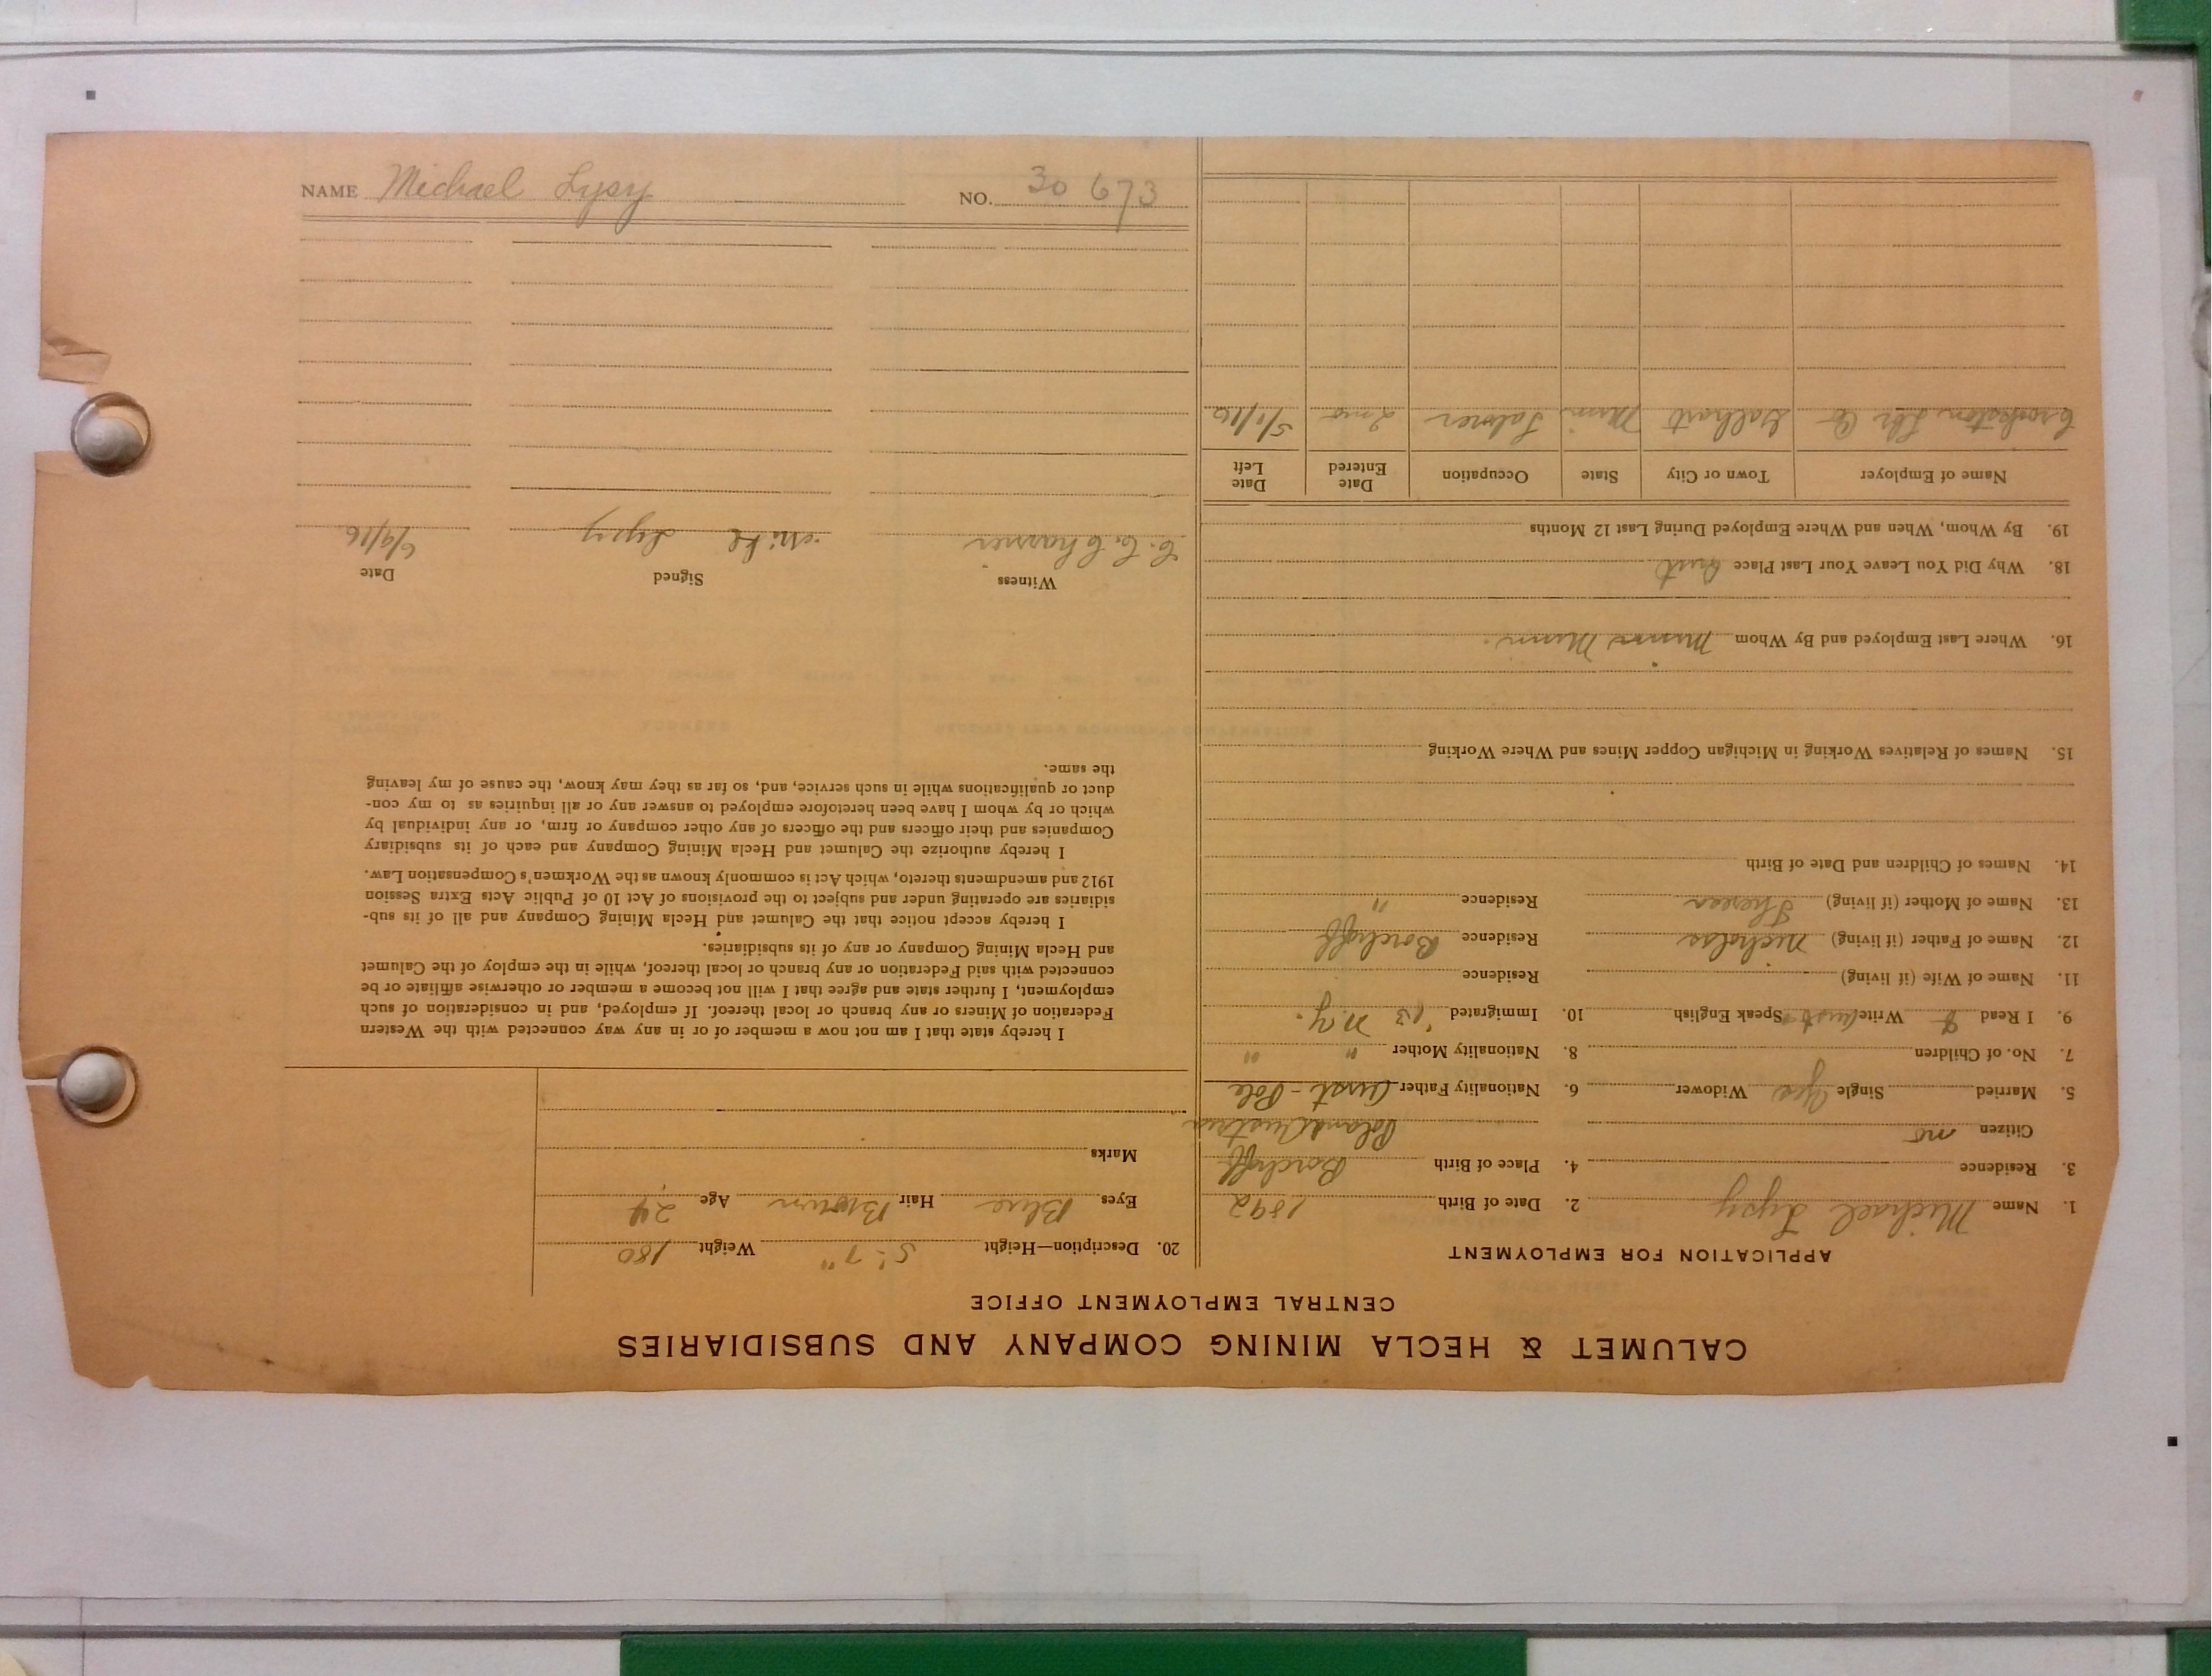 CALUMET & HECLA MINING COMPANY AND SUBSIDIARIES
CENTRAL EMPLOYMENT OFFICE
APPLICATION FOR EMPLOYMENT
1. Name Michael Lysy 2. Date of Birth 1892
3. Residence 4. Place of Birth Borchoff
Citizen no Poland Austria
5. Married Single Yes Widower 6. Nationality Father Aust-Pole
7. No. of Children 8. Nationality Mother " "
9. I Read & Write Aust Speak English 10. Immigrated '13 N.Y.
11. Name of Wife (if living) Residence
12. Name of Father (if living) Nicholas Residence Borchoff
13. Name of Mother (if living) Residence "
14. Names of Children and Date of Birth
15. Names of Relatives Working in Michigan Copper Mines and Where Working
16. Where Last Employed and By Whom Minn.
18. Why Did You Leave Your Last Place Quit
19. By Whom, When and Where Employed During Last 12 Months
Name of Employer Town or City State Occupation Date Entered Date Left
Crookston Lbr Co Minn Laborer 2 mo 5/1/16
20. Description—Height 5'-7" Weight 180
Eyes Blue Hair Brown Age 24
Marks
I hereby state that I am not now a member of or in any way connected with the Western
Federation of Miners or any branch or local thereof. If employed, and in consideration of such
employment, I further state and agree that I will not become a member or otherwise affiliate or be
connected with said Federation or any branch or local thereof, while in the employ of the Calumet
and Hecla Mining Company or any of its subsidiaries.
I hereby accept notice that the Calumet and Hecla Mining Company and all of its sub-
sidiaries are operating under and subject to the provisions of Act 10 of Public Acts Extra Session
1912 and amendments thereto, which Act is commonly known as the Workmen's Compensation Law.
I hereby authorize the Calumet and Hecla Mining Company and each of its subsidiary
Companies and their officers and the officers of any other company or firm, or any individual by
which or by whom I have been heretofore employed to answer any or all inquiries as to my con-
duct or qualifications while in such service, and, so far as they may know, the cause of my leaving
the same.
Witness Signed Date
C. C. Mike Lysy 6/9/16
NAME Michael Lysy NO. 30 673